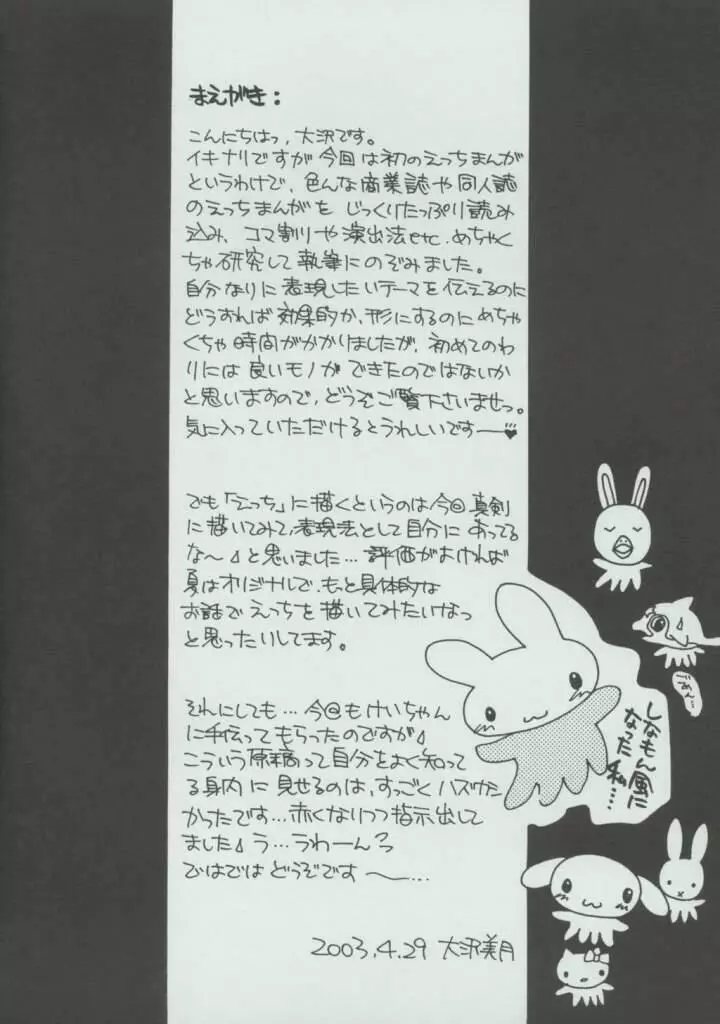 まえがき：
こんにちはっ、大沢です。
イキナリですが今回は初のえっちまんが
というわけで、色んな商業誌や同人誌
のえっちまんがを じっくりたっぷり読み
込み、コマ割りや演出法etc.めちゃく
ちゃ研究して執筆にのぞみました。
自分なりに表現したいテーマを伝えるのに
どうすれば効果的か、形にするのにめちゃ
くちゃ時間がかかりましたが、初めてのわ
りには良いモノができたのではないか
と思いますので、どうぞご覧下さいませっ。
気に入っていただけるとうれしいです──♥
でも「えっち」に描くというのは今回真剣
に描いてみて、表現法として自分にあってる
な〜♪と思いました…評価がよければ
夏はオリジナルで、もっと具体的な
お話でえっちを描いてみたいなっ
と思ったりしてます。
それにしても…今回もけいちゃん
に手伝ってもらったのですが♪
こういう原稿って自分をよく知って
る身内に見せるのは、すっごくハズカし
かったです…赤くなりつつ指示出して
ました♪う…うわーんっ
ではではどうぞです〜…
2003.4.29 大沢美月
ごめん…
しなもん風に
なった私…